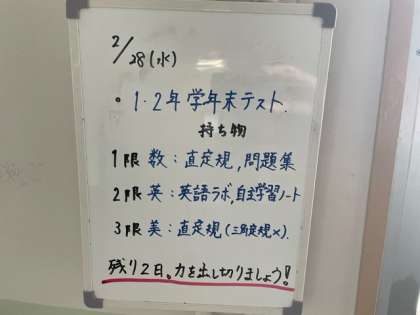 2/28(水)
• 1・2年学年末テスト.
持ち物
1限 数:直定規,問題集
2限 英:英語ラボ,自主学習ノート
3限 美:直定規(三角定規×).
残り2日。力を出し切りましょう!